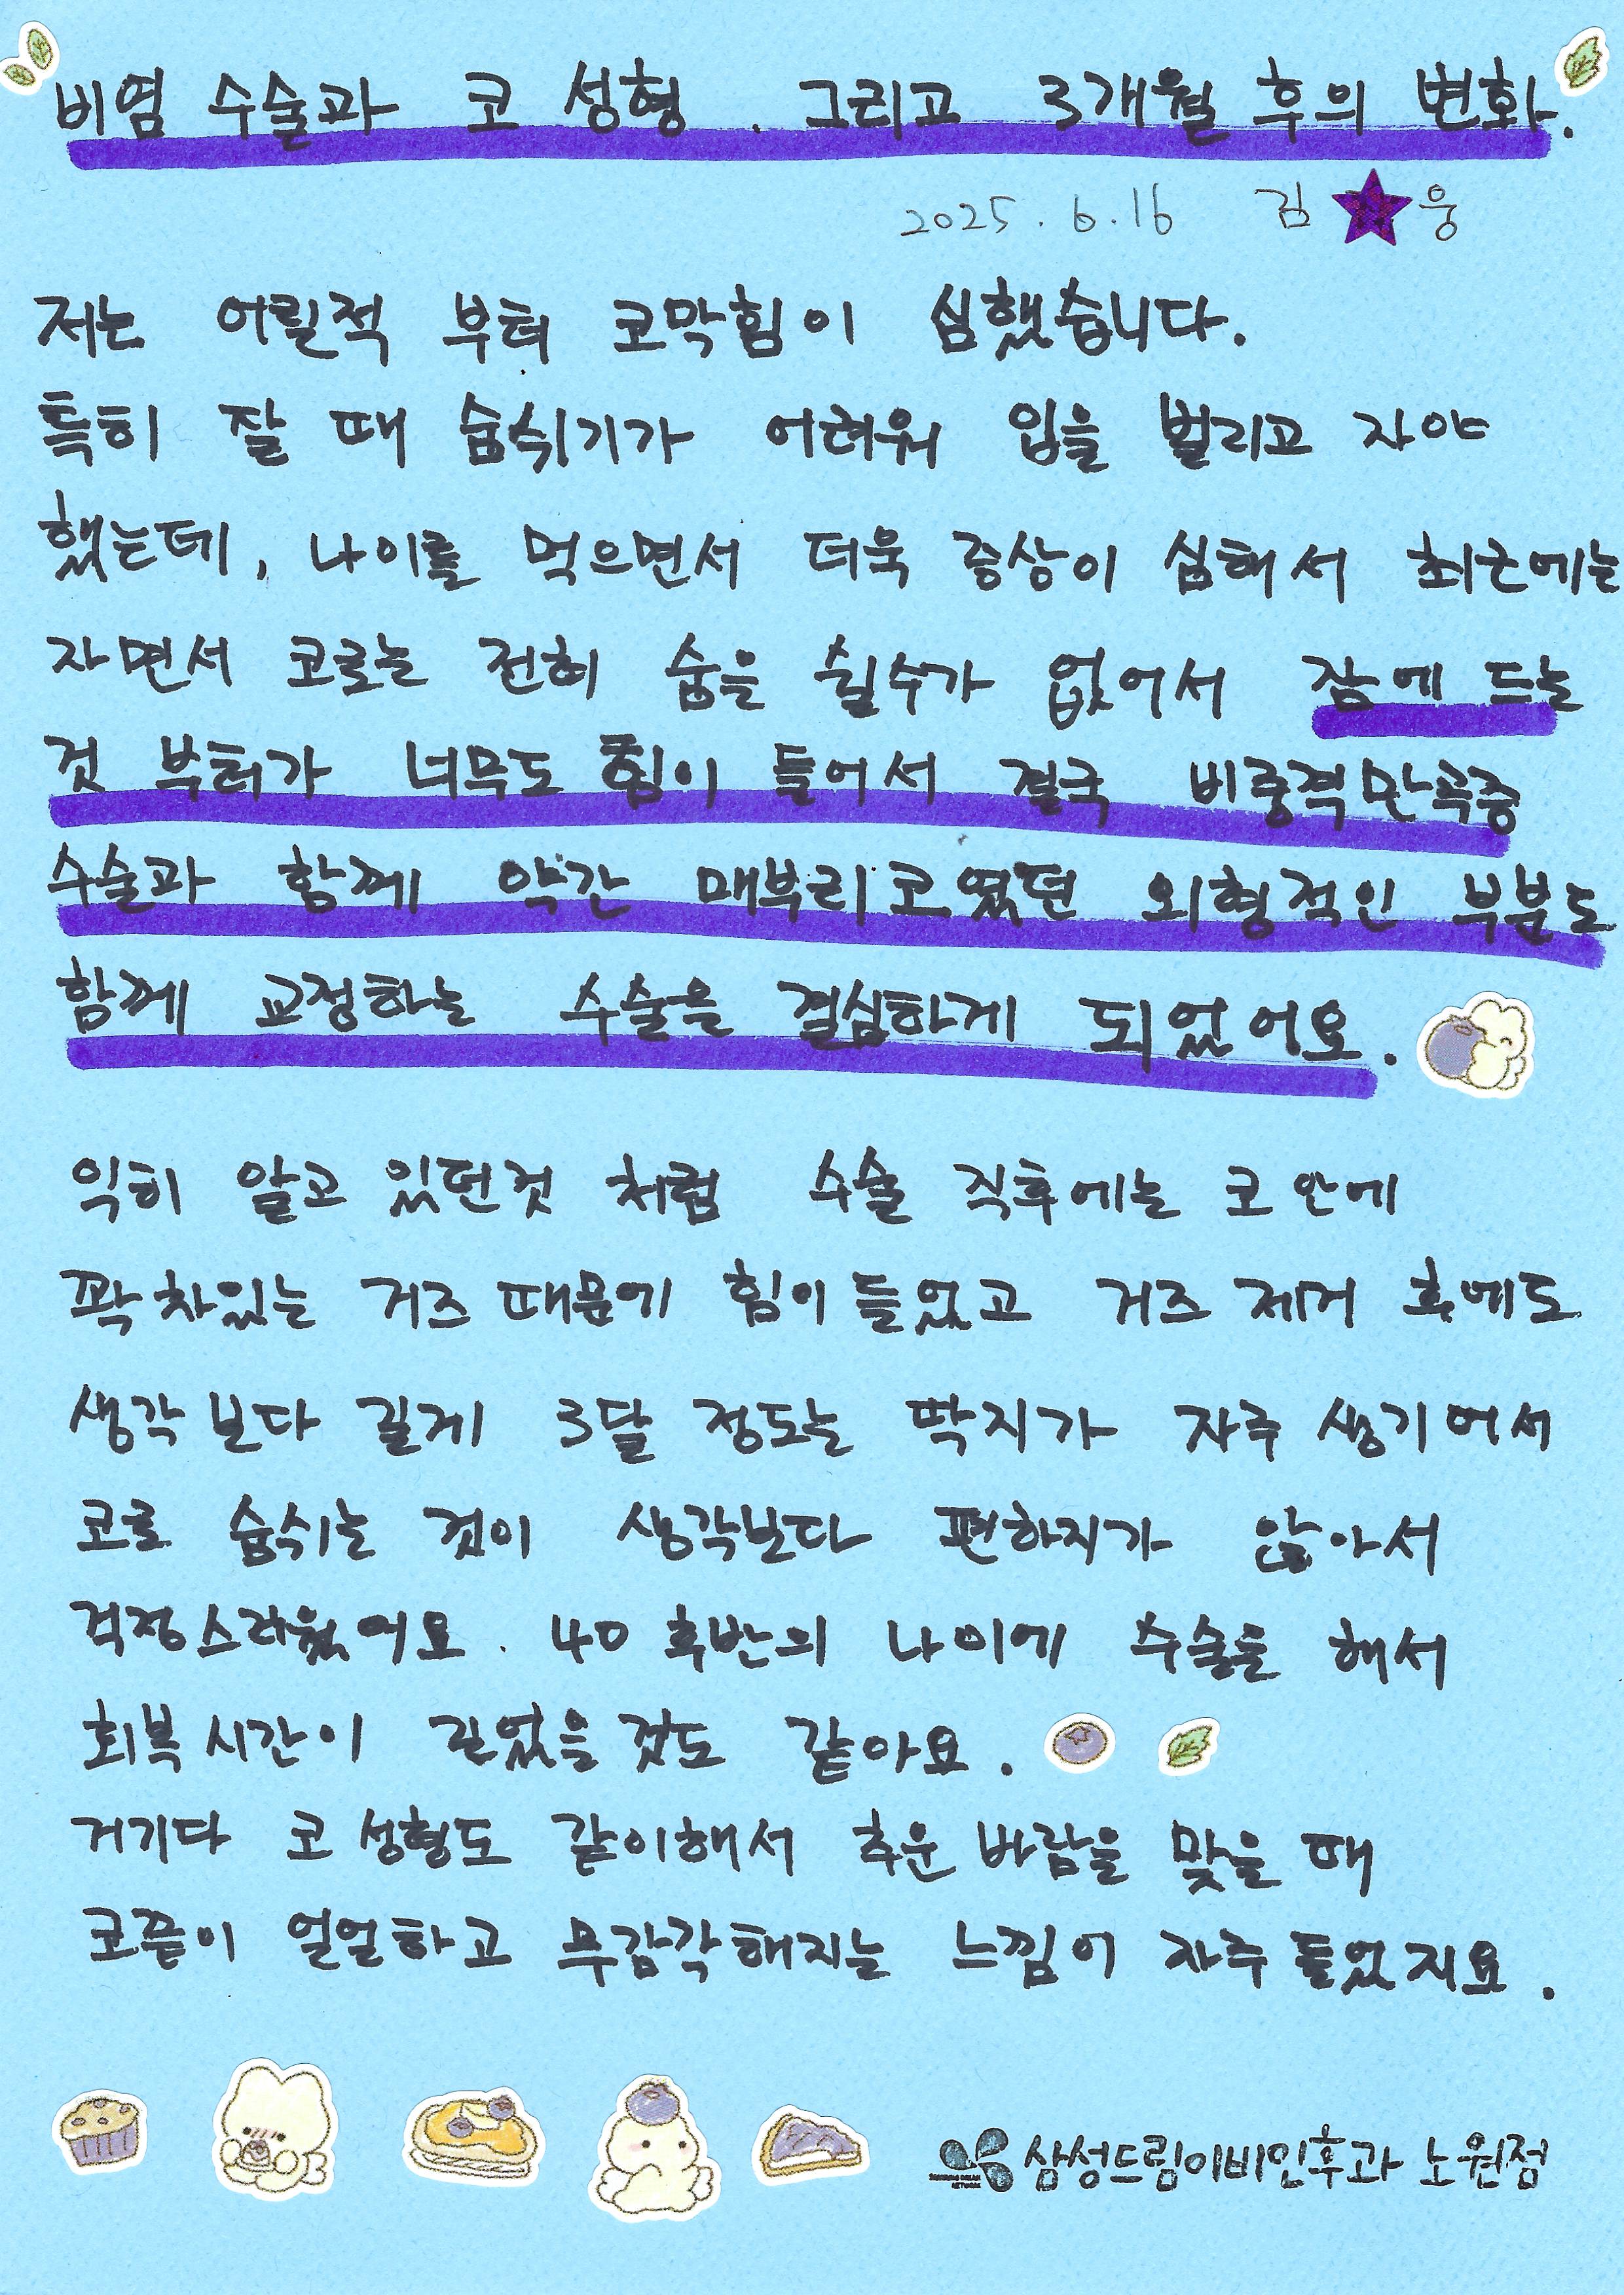 비염 수술과 코 성형. 그리고 3개월 후의 변화.
2025. 6. 16 김 웅
저는 어릴적 부터 코막힘이 심했습니다.
특히 잘 때 숨쉬기가 어려워 입을 벌리고 자야
했는데, 나이를 먹으면서 더욱 증상이 심해서 최근에는
자면서 코로는 전혀 숨을 쉴수가 없어서 잠에 드는
것 부터가 너무도 힘이 들어서 결국 비중격만곡증
수술과 함께 약간 매부리코였던 외형적인 부분도
함께 교정하는 수술을 결심하게 되었어요.
익히 알고 있던것 처럼 수술 직후에는 코 안에
꽉 차있는 거즈 때문에 힘이 들었고 거즈 제거 후에도
생각보다 길게 3달 정도는 딱지가 자주 생기어서
코로 숨쉬는 것이 생각보다 편하지가 않아서
걱정스러웠어요. 40 후반의 나이에 수술을 해서
회복 시간이 길었을 것도 같아요.
거기다 코 성형도 같이해서 추운 바람을 맞을 때
코끝이 얼얼하고 무감각해지는 느낌이 자주 들었지요.
삼성드림이비인후과 노원점